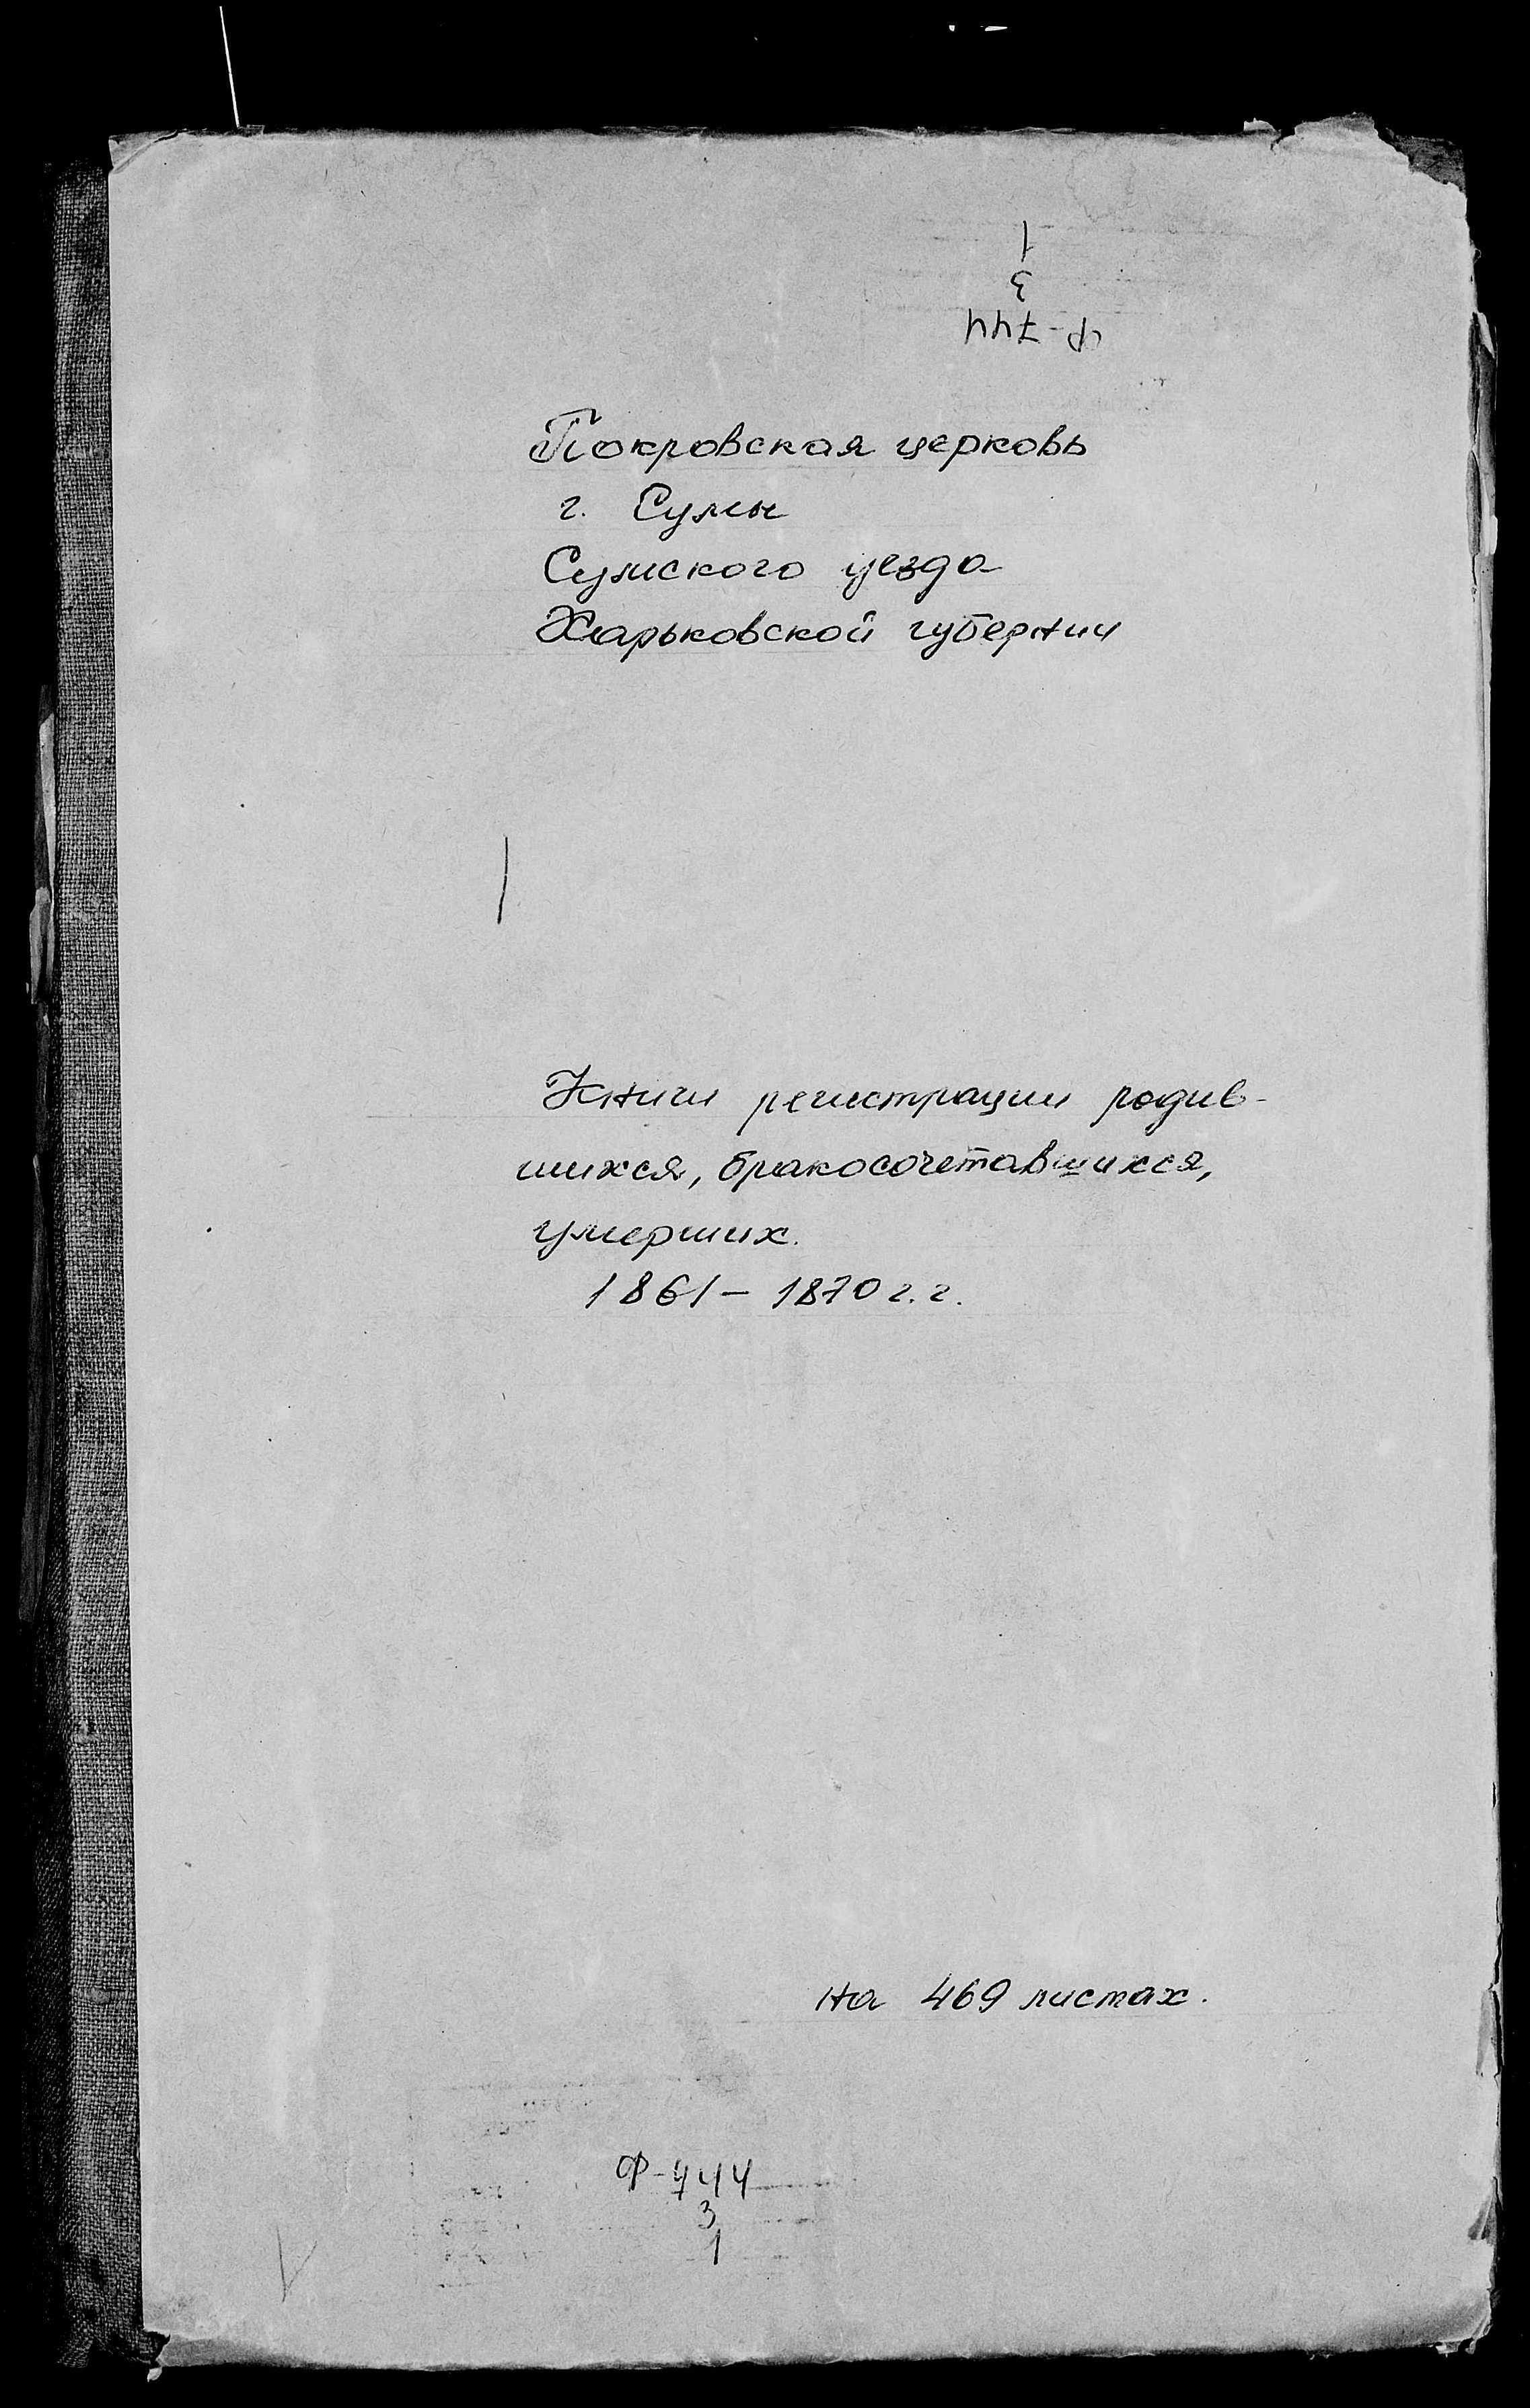 Ф-744
3
1
Покровская церковь
г. Сумы
Сумского уезда
Харьковской губернии
Книги регистрации родив-
шихся, бракосочетавшихся,
умерших.
1861 - 1870 г.г.
на 469 листах.
Ф-744
3
1